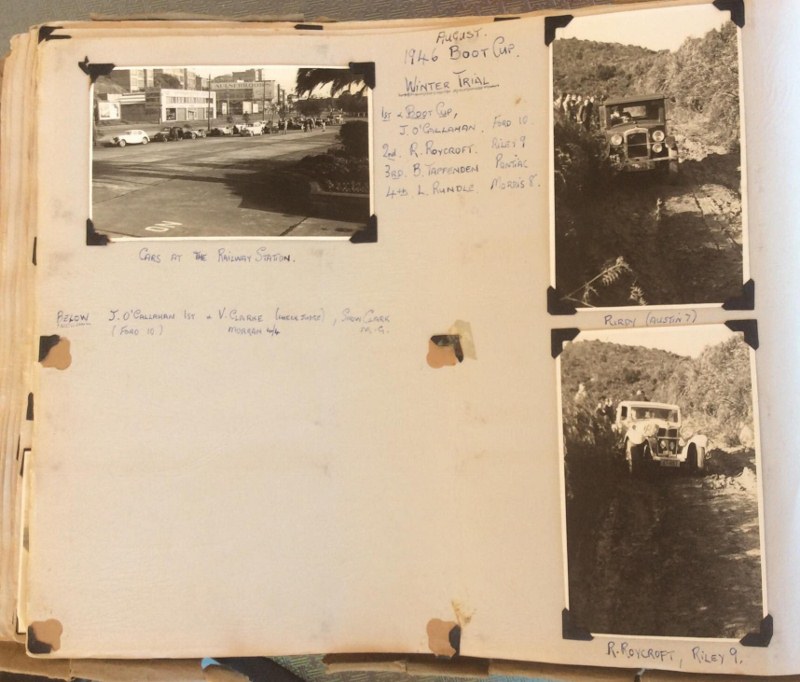 AUGUST.
1946 BOOT CUP.
WINTER TRIAL
1st & BOOT CUP,
J. O'CALLAHAN. FORD 10.
2nd. R. ROYCROFT. RILEY 9
3RD. B. TAPPENDEN PONTIAC
4th. L. RUNDLE. MORRIS 8.
NO
CARS AT THE RAILWAY STATION.
BELOW J. O'CALLAHAN 1ST & V. CLARKE, CLARK
(FORD 10.) MORGAN 4/4 M.G.
(AUSTIN 7)
R. ROYCROFT, RILEY 9.